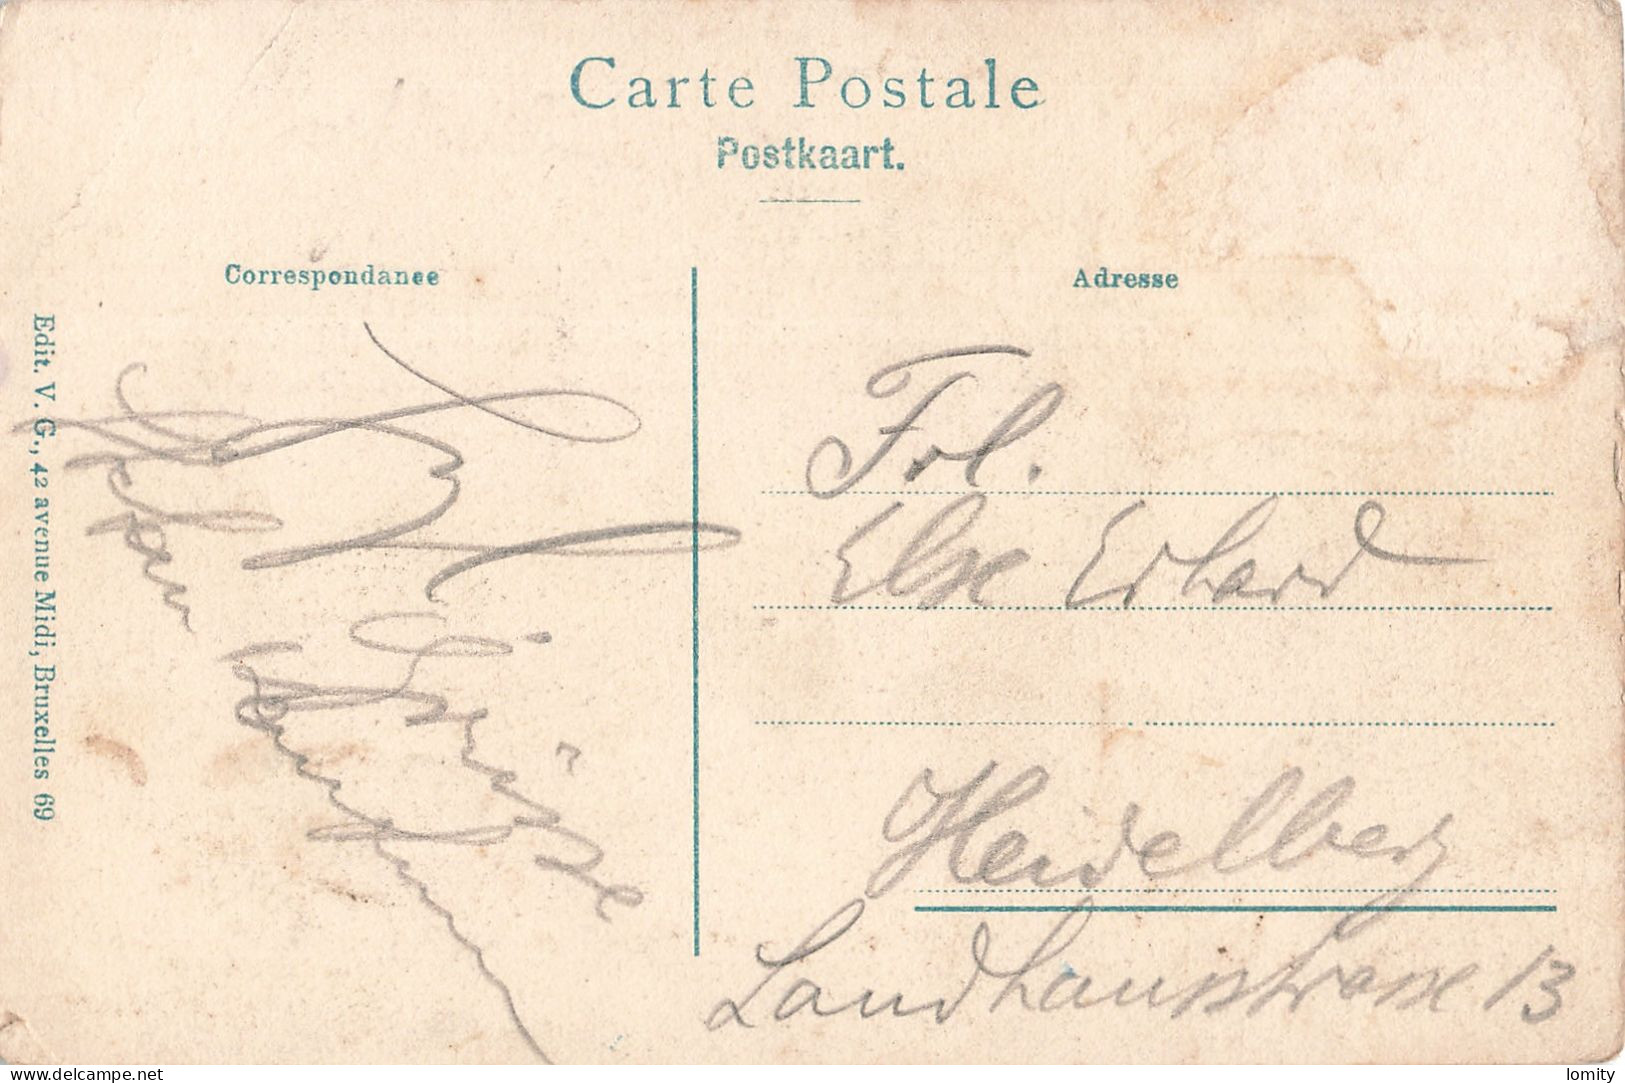 Carte Postale
Postkaart.
Correspondance
Adresse
Edit. V. G., 42 avenue Midi, Bruxelles 69
Grüsse
Frl.
Else Erhard
Heidelberg
Landhausstrasse 13
www.delcampe.net
lomity